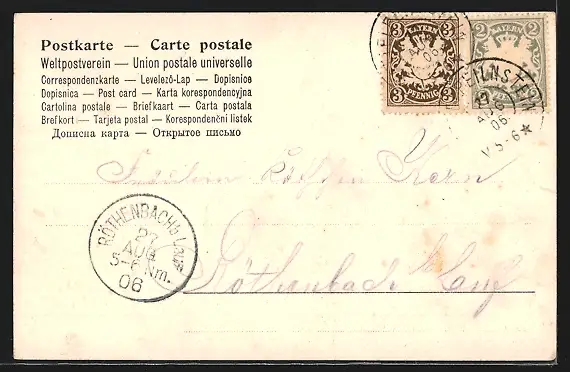 Postkarte — Carte postale
Weltpostverein — Union postale universelle
Correspondenzkarte — Levelező-Lap — Dopisnice
Dopisnica — Post card — Karta korespondencyjna
Cartolina postale — Briefkaart — Carta postala
Brefkort — Tarjeta postal — Korespondenční listek
Дописна карта — Открытое письмо
3 BAYERN 3
3 PFENNIG 3
2 BAYERN 2
27
AUG
06
V 5-6 ★
Röthenbach Lauf
RÖTHENBACH b LAUF
27
AUG
5-6 Nm.
06